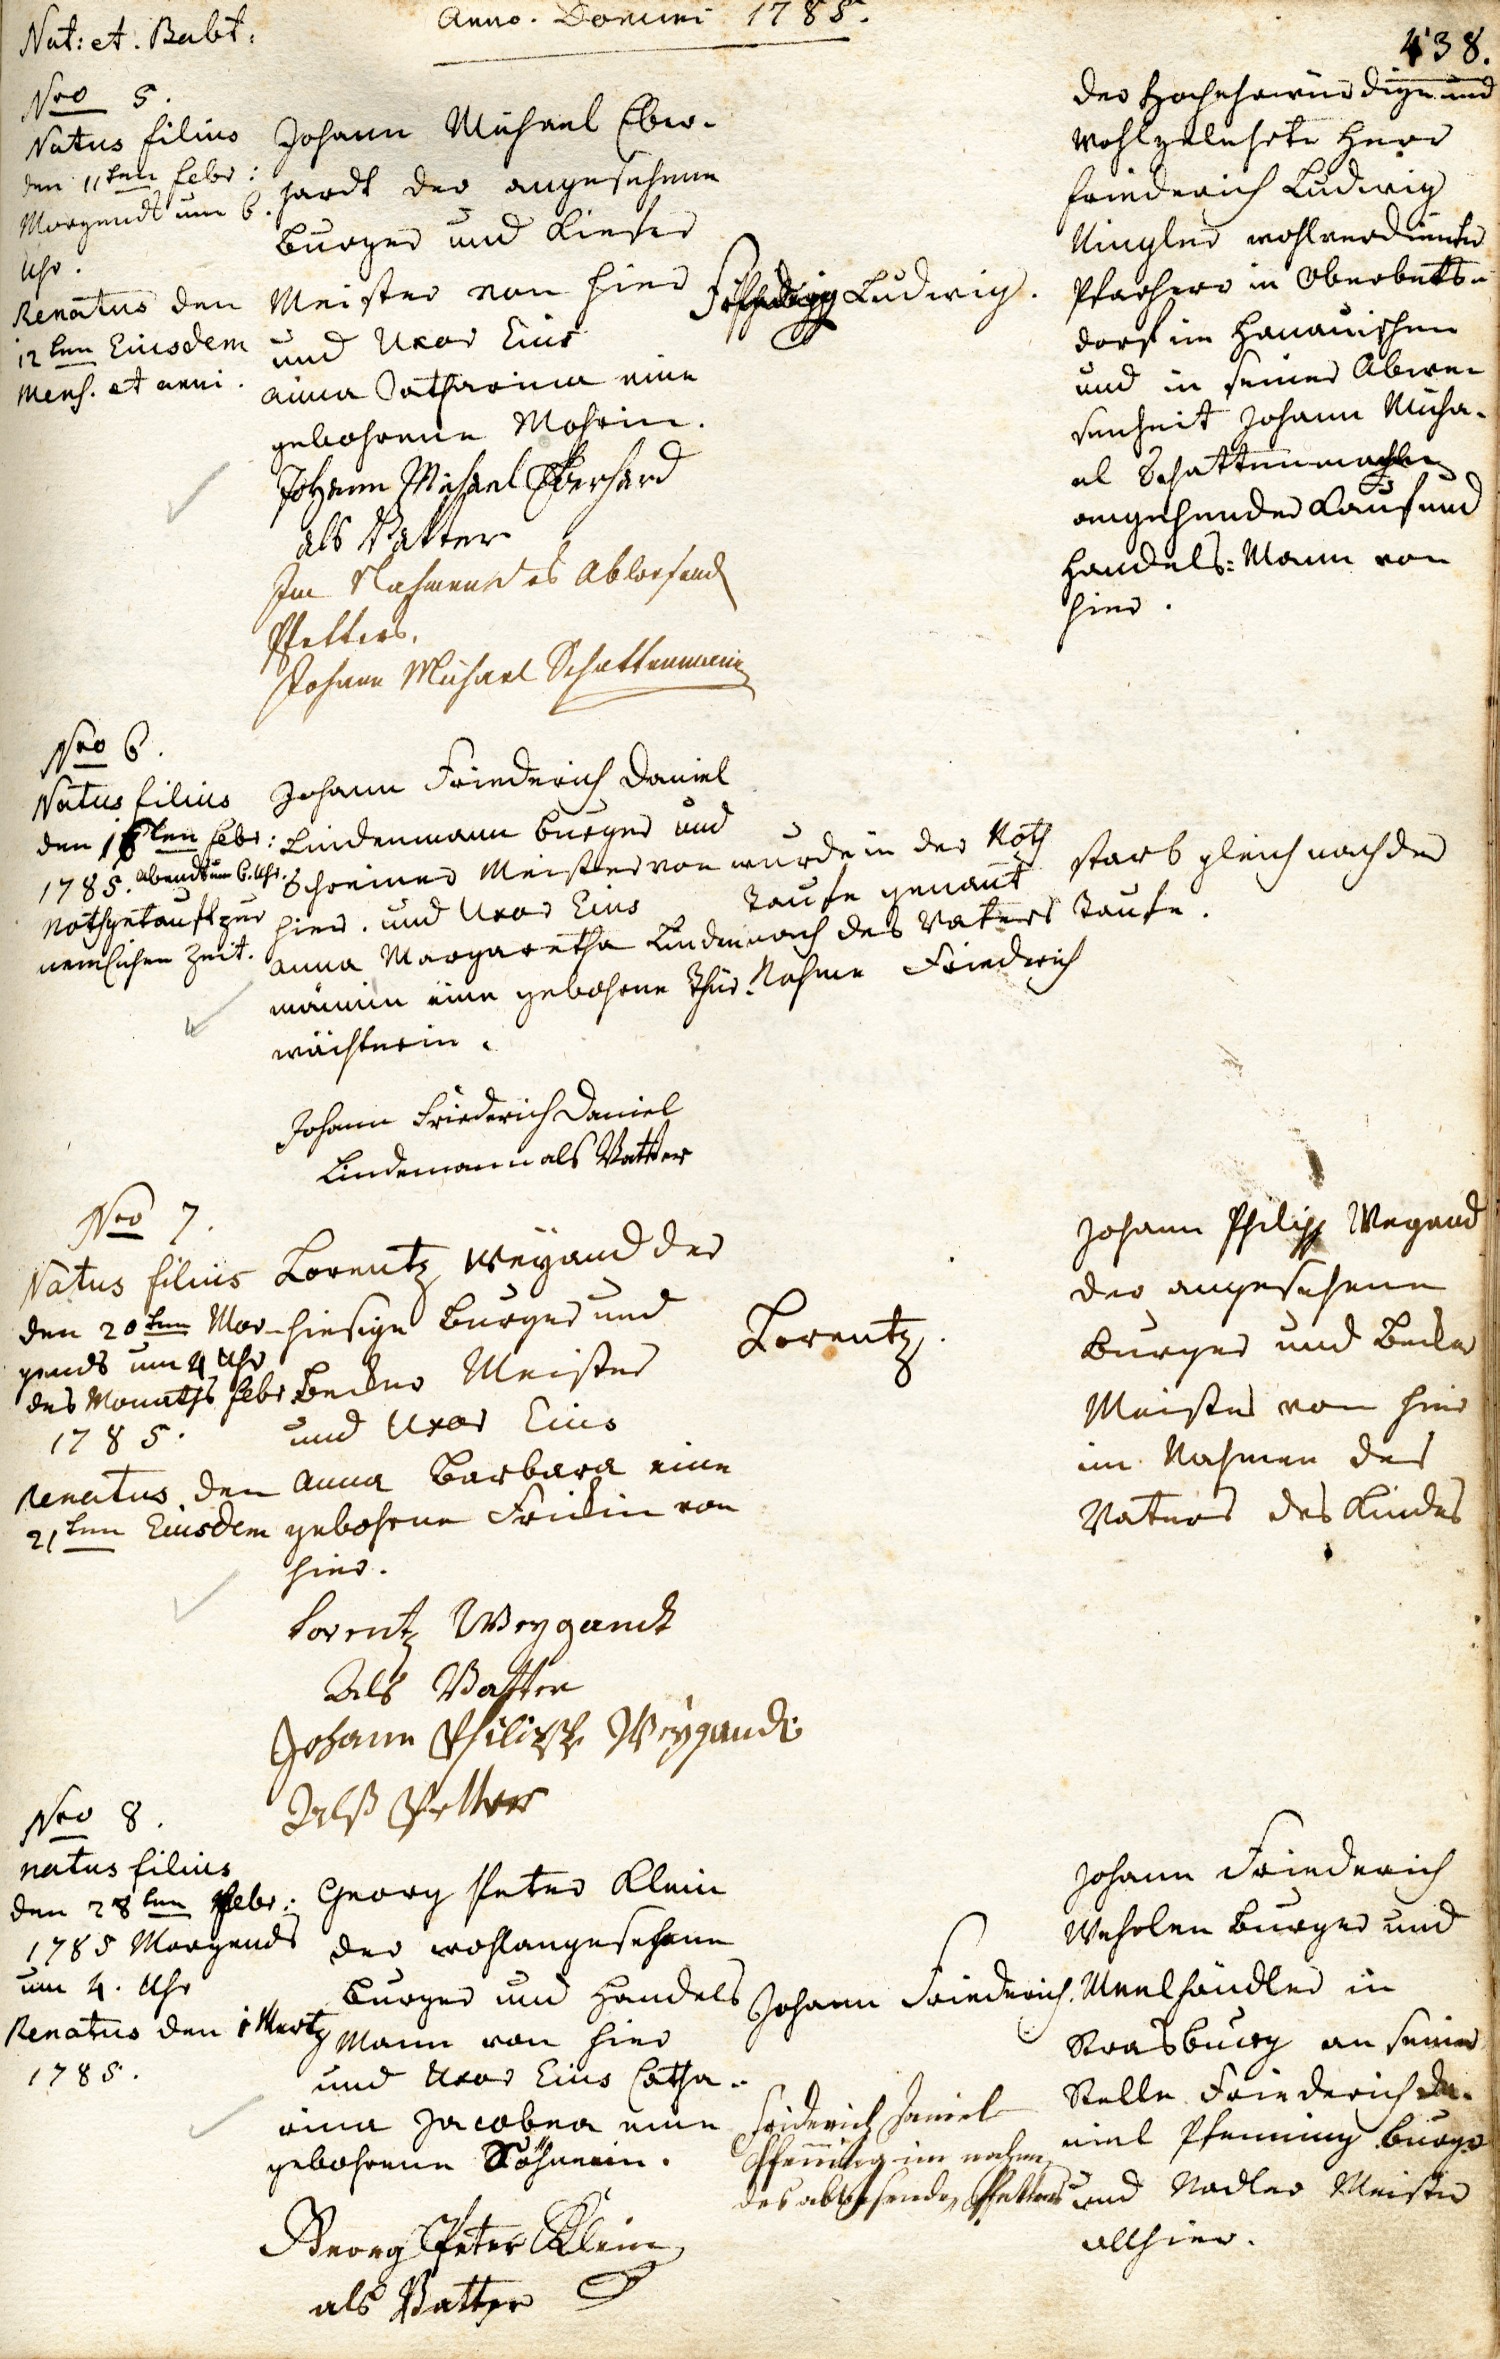 Nat: et. Babt:
Anno. Domini 1785.
438.
Nro 5.
Natus filius
den 11ten Febr:
Morgends um 6.
Uhr.
Renatus den
12ten Eiusdem
Mens. et anni.
Johann Michael Eber-
hardt der angesehene
Burger und Kiefer
Meister von hier
und Uxor Eius
Anna Catharina eine
gebohrene Mohrin.
Johann Michael Eberhard
als Vatter
Im Nahmen des Abwesend
Pfetters.
Johann Michael Schattenmann
Ludwig.
der Hochehrwürdige und
Wohlgelehrte Herr
Friederich Ludwig
wohlverdienter
Pfarherr in Oberbets-
dorf im Hanauischen
und in seiner Abwe-
senheit Johann Micha-
el Schattenmann
angehender Kauf und
Handels: Mann von
hier.
Nro 6.
Natus filius
den 16ten Febr:
1785. Abends um 6. Uhr.
Nothgetauft zur
nemlichen Zeit.
Johann Friederich Daniel
Lindenmann Burger und
Schreiner Meister von
hier. und Uxor Eius
Anna Margaretha Linden-
männin eine gebohrne Thür-
wächterin.
Johann Friederich Daniel
Lindemann als Vatter
wurde in der Noth
Taufe genant
nach des Vaters
Nahme Friedrich
starb gleich nach der
Taufe.
Nro 7.
Natus filius
den 20ten Mor-
gends um 4 Uhr
des Monaths Febr
1785.
Renatus den
21ten Eiusdem
Lorentz Weyand der
hiesige Burger und
Becker Meister
und Uxor Eius
Anna Barbara eine
gebohrene Frickin von
hier.
Lorentz Weygandt
Als Vatter
Johann Philipp Weygandt
Alß Pfetter
Lorentz.
Johann Philipp Wegand
der angesehene
Burger und Becker
Meister von hier
im Nahmen des
Vaters des Kindes
Nro 8.
natus filius
den 28ten Febr:
1785 Morgends
um 4. Uhr
Renatus den 1 Mertz
1785.
Georg Peter Klein
der wohlangesehene
Burger und Handels
Mann von hier
und Uxor Eius Catha-
rina Jacobea eine
gebohrene Söhnerin.
Georg Peter Klein
als Vatter
Johann Friederich.
Friderich Daniel
Pfenning im nahmen
des abwesenden Pfetters
Johann Friederich
Burger und
Meelhändler in
Strasburg an seiner
Stelle Friederich Da-
niel Pfenning Burger
und Nadler Meister
allhier.